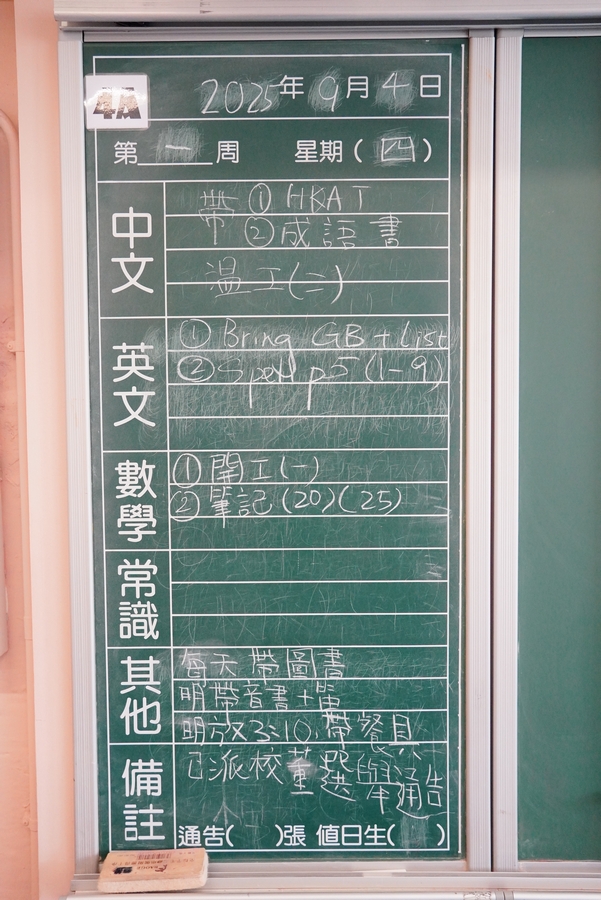 4A
2025年9月4日
第一周 星期(四)
中文
帶①HKAT
②成語書
溫工(二)
英文
①Bring GB + List
②Spell p5 (1-9)
數學
①開工(一)
②筆記(20)(25)
常識
其他
每天帶圖書
明帶音書+笛
明放3:10,帶餐具
備註
已派校董選舉通告
通告( )張 值日生( )